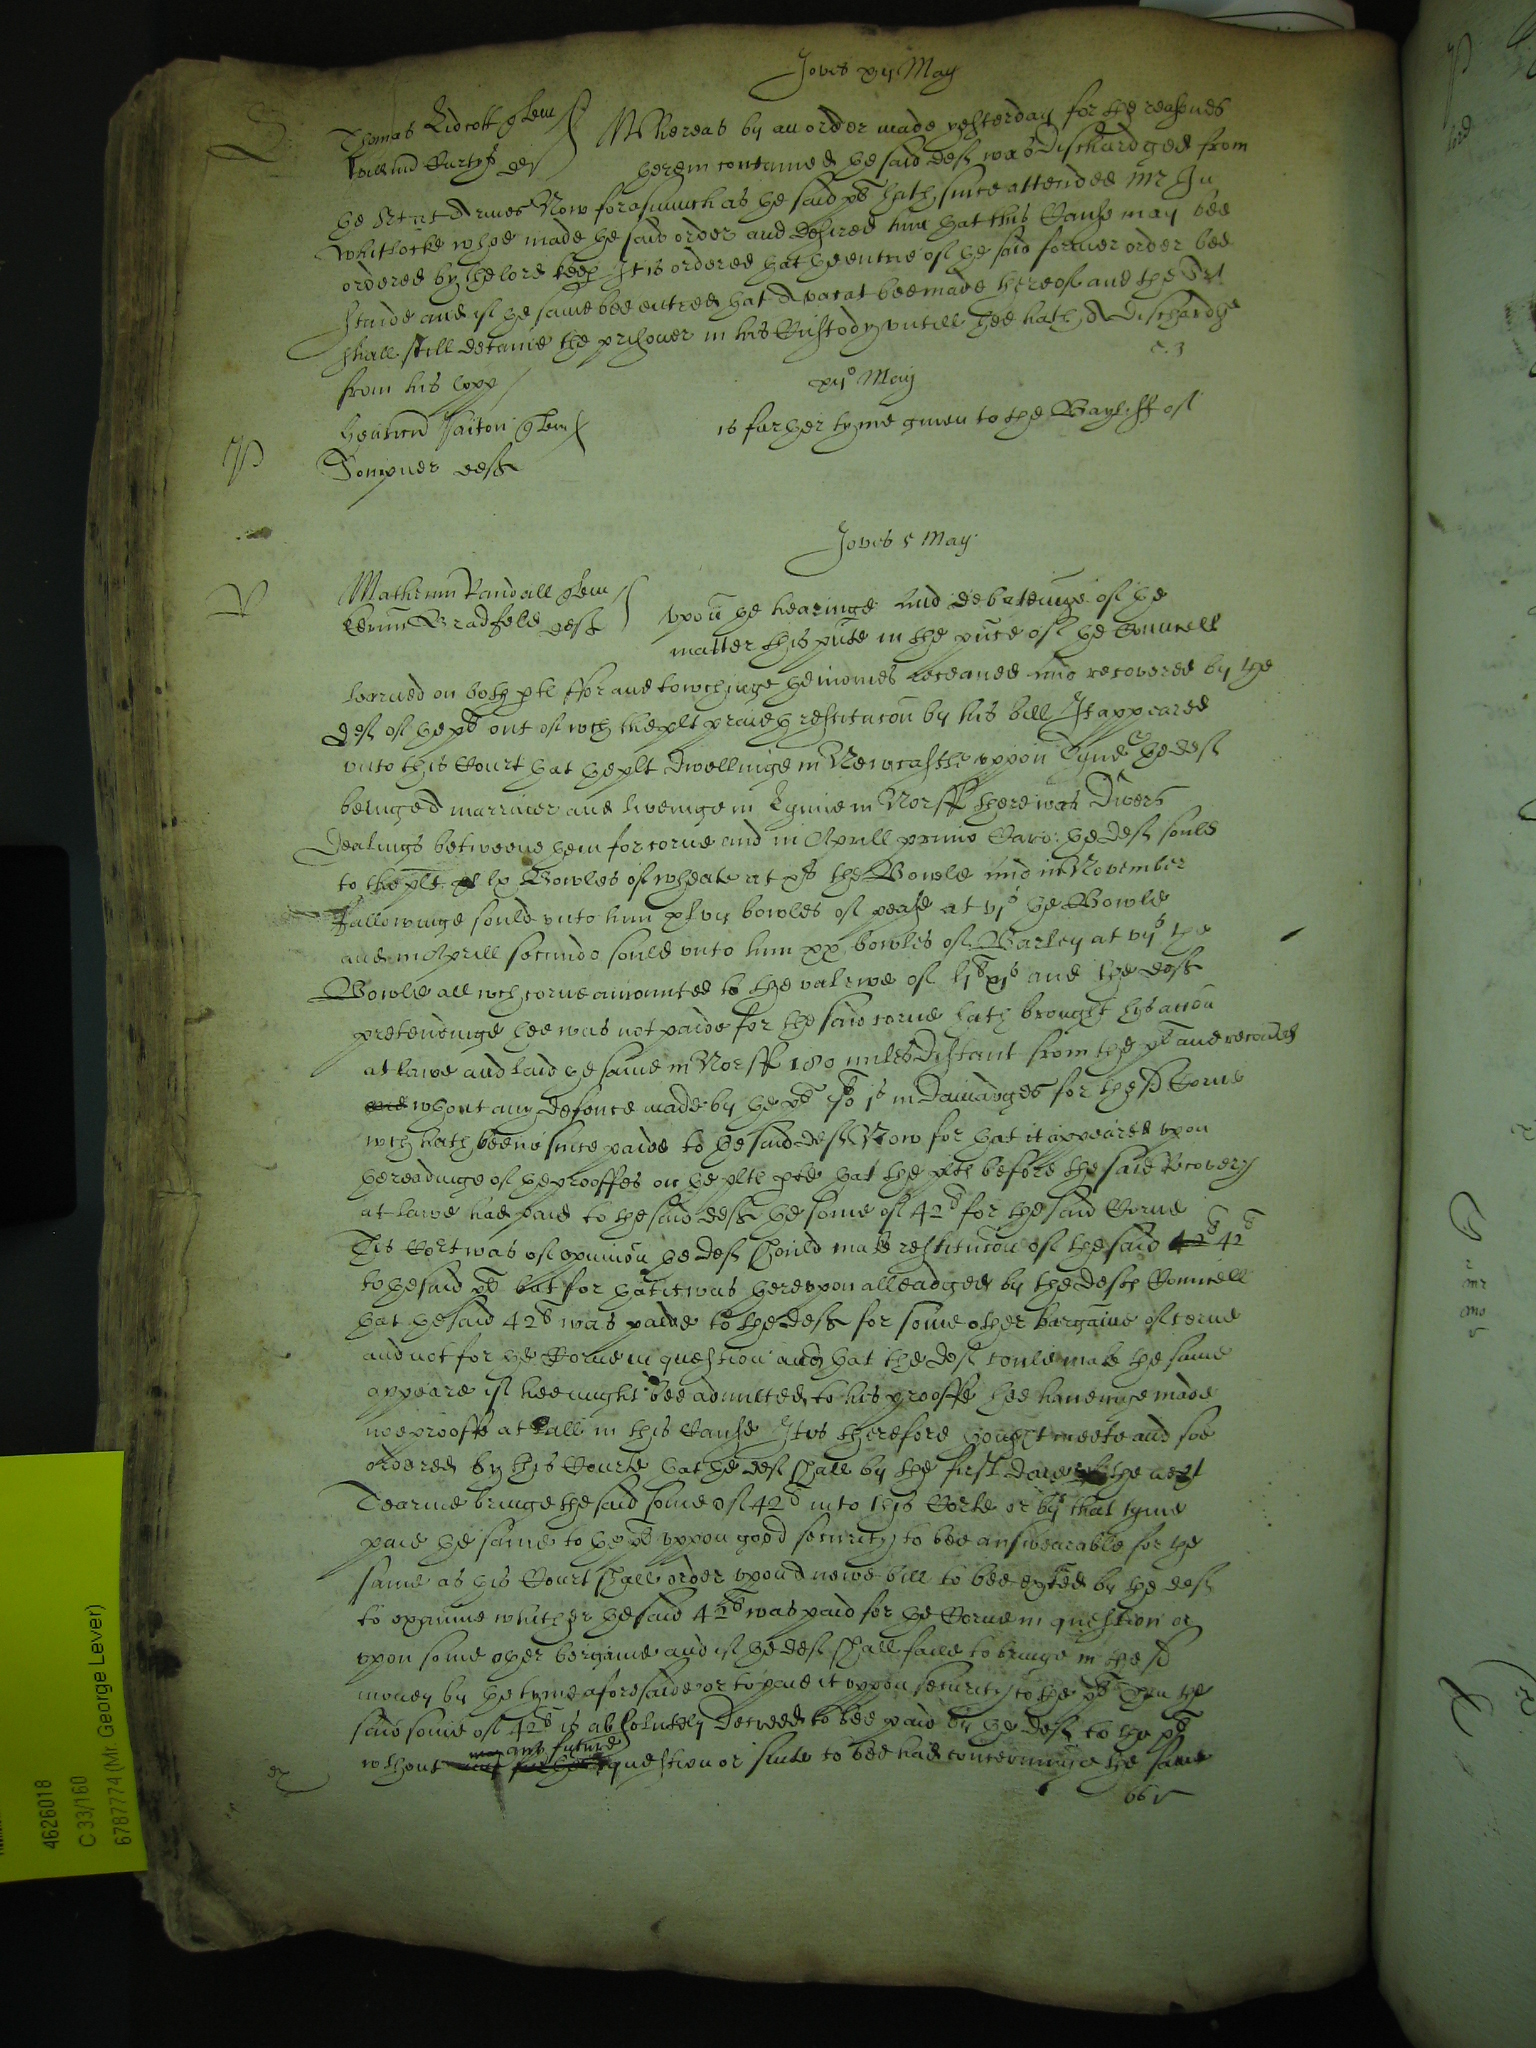 Jovis xij May
Thomas Lidcott quer Whereas by an order made yesterday for the reasones
def therein contained the said def was dischardged from
the Now forasmuch as the said pt hath since attended Mr Ju
Whitlocke whoe made the said order and desired him that this Cause may bee
ordered by the lord keep It is ordered that the entrie of the said former order bee
staide and if the same bee entred that A vacat bee made thereof and the
shall still detaine the prisoner in his Custody untill hee hath A dischardge
from his lopp
xij° May
quer is further tyme given to the Bayliff of
deft
Jovis 5 May
Randall quer
Bradfeld deft upon the hearinge and debateinge of the
matter this pnte in the pnce of the Councell
learned on both ptes for and towchinge the monies receaved and recovered by the
def of the plt out of wch the plt praieth restitucon by his bill It appeared
unto this Court that the plt dwellinge in Newcastle uppon Tyne & the def
beinge A marriner and liveinge in Lynne in Norff there was divers
dealings betweene them for corne and in Aprill primo Caro: the def sould
to the plt lx Bowles of wheate at xs the Bowle and in November
followinge sould unto him xlvij bowles of pease at vjs the Bowle
and in Aprill secundo sould unto him xx bowles of Barley at vijs the
Bowle all wch corne amounted to the valewe of and the deft
pretendinge hee was not paide for the said corne hath brought his accon
at lawe and laid the same in Norff 180 miles distant from the plt and recovered
and wthout any defence made by the plt in damadges for the sd Corne
wch hath beene since paide to the said deft Now for that it appeared upon
the readinge of the prooffes on the plts pte that the plt before the said Recovery
at lawe had paid to the said deft the some of 42l for the said Corne
This Cort was of opinion the def should make restitucon of the said 42l 42l
to the said plt but for that it was thereupon alleadged by the defts Councell
that the said 42l was paide to the deft for some other bargaine of corne
and not for the Corne in question and that the def could make the same
appeare if hee might bee admitted to his prooffe hee haveinge made
noe prooffe at all in this Cause It is therefore thought meete and soe
ordered by this Courte that the def shall by the first daie of the next
Tearme bringe the said some of 42l into this Corte or by that tyme
paie the same to the plt uppon good security to bee answearable for the
same as this Court shall order upon A newe bill to bee exhited by the def
to examine whither the said 42l was paid for the Corne in question or
upon some other bargaine and if the def shall faile to bringe in the sd
money by the tyme aforesaide or to paie it uppon security to the plt Then the
said some of 42l is absolutely decreed to bee paid by the def to the plt
any future
wthout question or suite to bee had concerninge the same
ex
4626018
C 33/160
6787774 (Mr. George Lever)